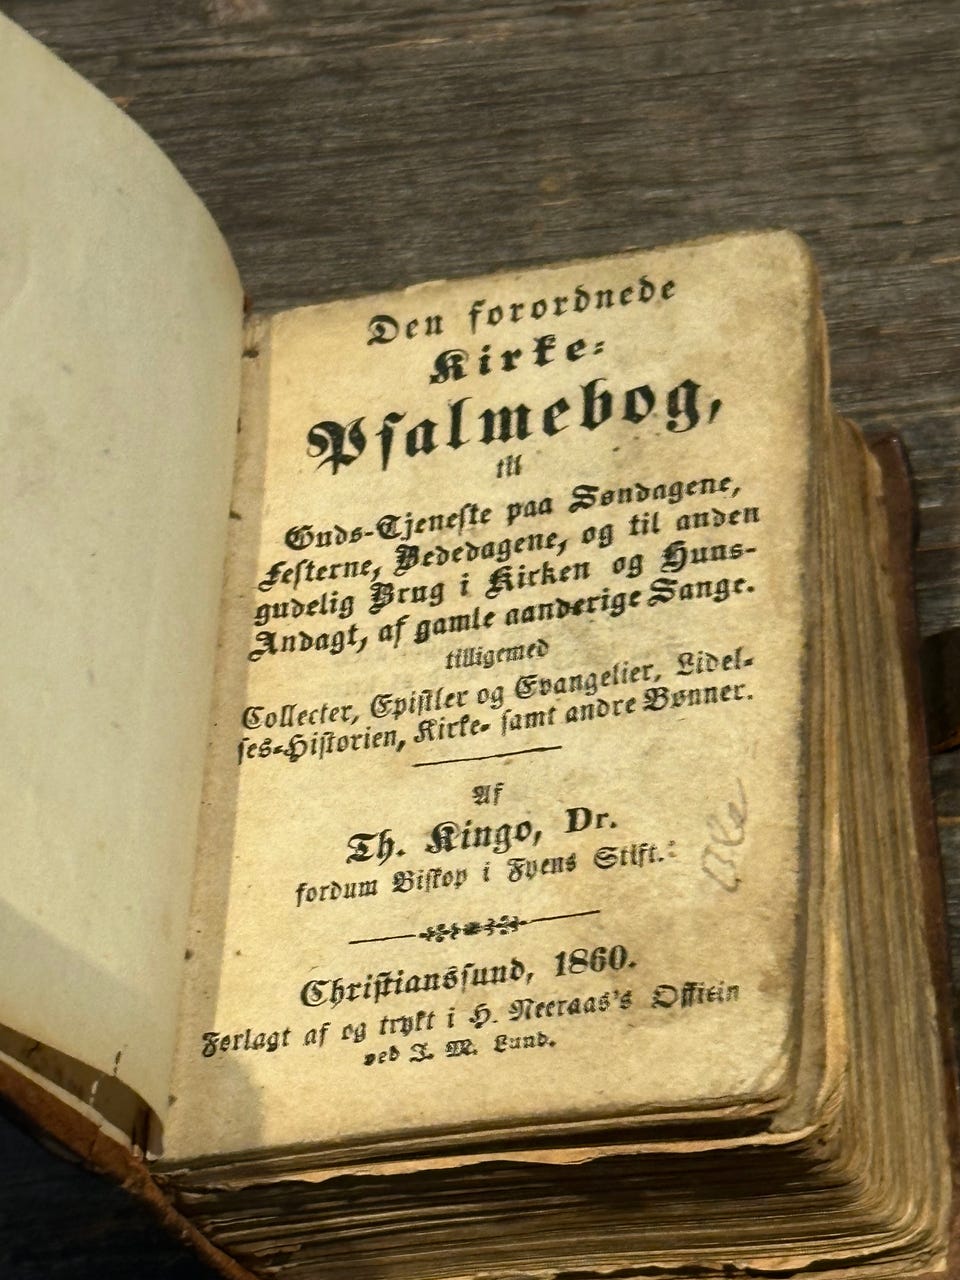 Den forordnede
Kirke-
Psalmebog,
til
Guds-Tjeneste paa Søndagene,
Festerne, Bededagene, og til anden
gudelig Brug i Kirken og Huus-
Andagt, af gamle aanderige Sange.
tilligemed
Collecter, Epistler og Evangelier, Lidel-
ses-Historien, Kirke- samt andre Bønner.
Af
Th. Kingo, Dr.
fordum Biskop i Fyens Stift.
Christianssund, 1860.
Forlagt af og trykt i H. Neeraas's Officin
ved J. M. Lund.